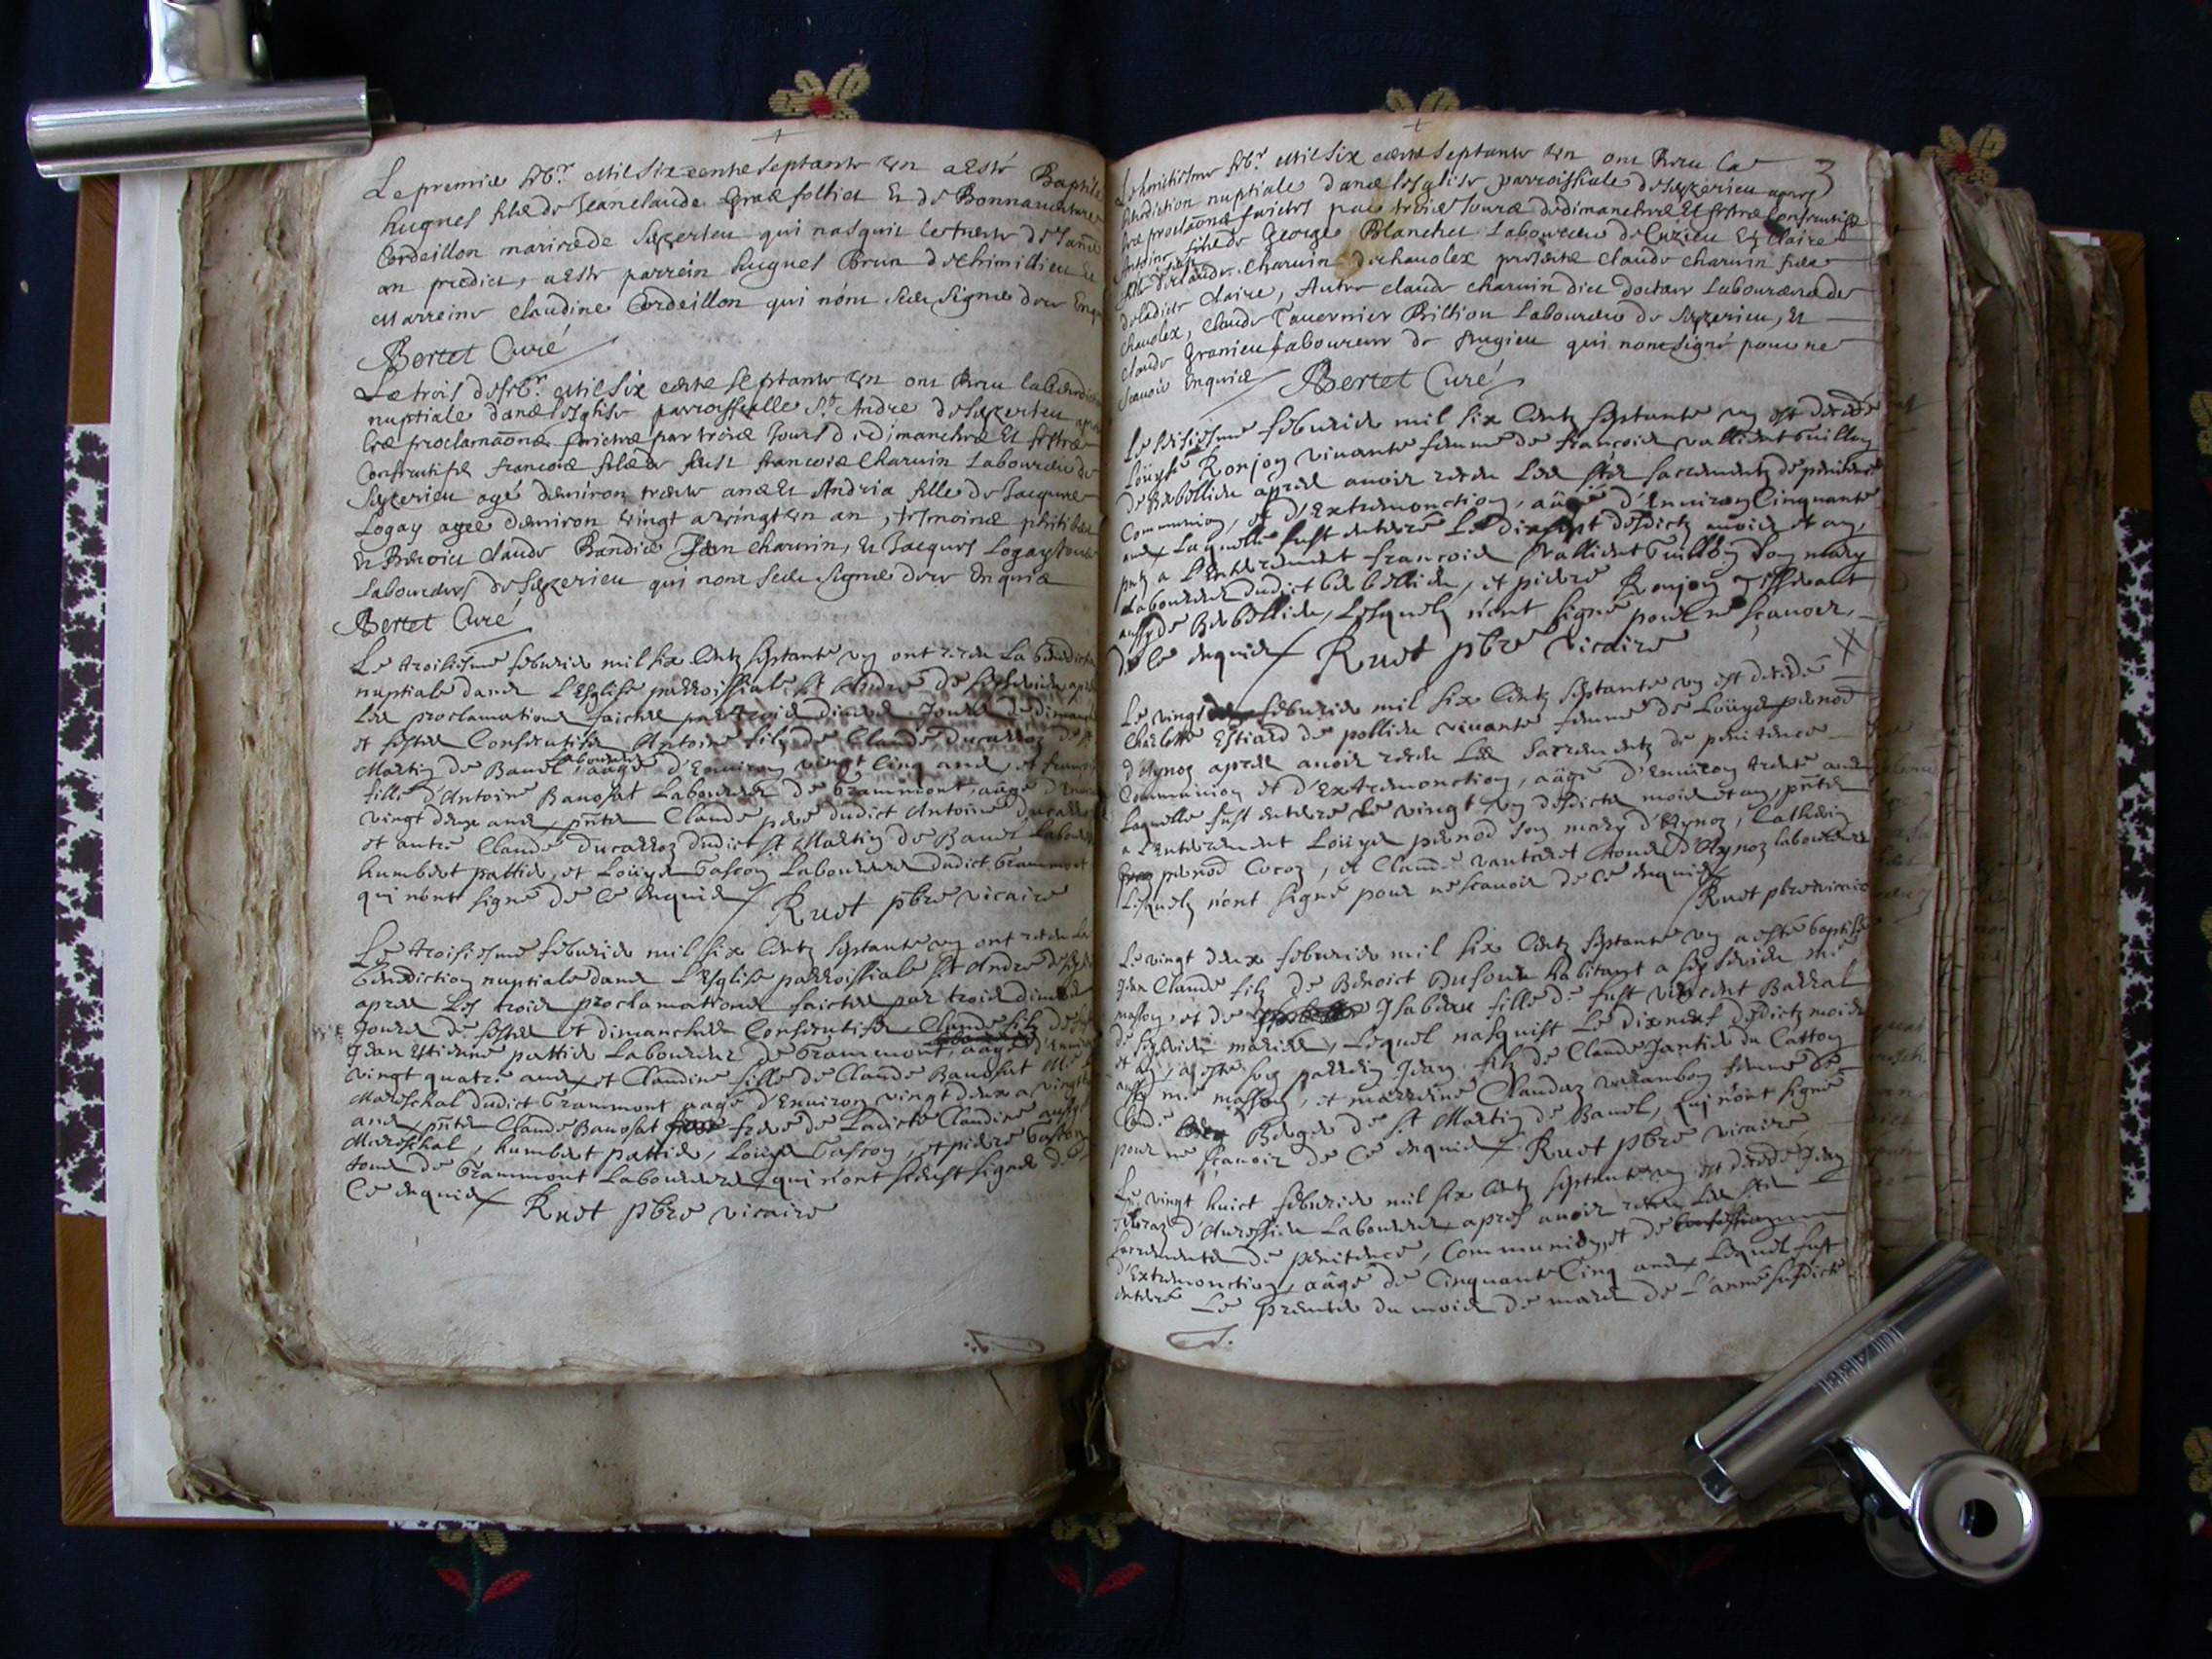 Le premier febr. Mil six cents septante un a esté Baptisé
hugues filz de Jeanclaude folliet Et de Bonnaventure
Cordeillon mariez de Seyzerieu qui nasquit le de Jan.
an predict, a esté parrein hugues Brun de Chimillieu Et
Marreine Claudine Cordeillon qui n'ont sceu signer deux Enquis
Bertet Curé
Le trois de febr. Mil six cents septante un ont Receu la benedict
nuptiale dans l'esglise parroissialle St. Andre de Seyzerieu apres
les proclamaôns faictes par trois Jours de dimanche Et festes
Consecutifs francois filz de feu francois Charvin Laboureur de
Seyzerieu agé d'environ trente ans Et Andria fille de Jacques
Logay agée d'environ vingt a vingt un an, tesmoins philibert
Et Benoict Claude Jean Charvin, Et Jacques Logay tous
Laboureurs de Seyzerieu qui n'ont sceu signer deux Enquis
Bertet Curé
Le troisiesme feburier mil six Centz septante un ont receu La benedictn
nuptiale dans L'Esglise parroissiale St Andre de Seyserieu apres
Les proclamations faictes par trois divers Jours de dimanche
et festes Consecutifs Antoine filz de Claude Ducarroz de St
Martin de Bavel laboureur, aagé d'Environ vingt Cinq ans, et
fille d'Antoine Banosat Laboureur de Grammont, aagé d'Env
vingt deux ans, pñts Claude pere dudict Antoine Ducarroz
et autre Claude Ducarroz dudict St Martin de Bavel Labour
humbert pattier, et Loüys Gascon Laboureurs dudict Grammont
qui n'ont signé de ce enquis Ruet pbre vicaire
Le troisiesme feburier mil six Centz septante un ont receu La
benediction nuptiale dans L'Esglise parroissiale St Andre de Seys
apres Les trois proclamations faictes par trois divers
Jours de festes et dimanches Consecutifs Claude filz de
Jean Estienne pattier Laboureur de Grammont, aagé d'Environ
vingt quatre ans, et Claudine fille de Claude Banosat Me
Mareschal dudict Grammont aagé d'Environ vingt deux a vingt
ans, pñts Claude Banosat frere de Ladicte Claudine aussy
Mareschal, humbert pattier, Loüys Gascon, et pierre Gascon
tous de Grammont Laboureurs, qui n'ont sceust signer de
Ce enquis Ruet pbre vicaire
3
Le huictiesme febr. Mil six cents septante un ont Receu la
Benediction nuptiale dans l'esglise parroissiale de Seyzerieu apres
les proclamaôns faictes par trois Jours de dimanches Et festes Consecutifs
Antoine filz de George Blanchet Laboureur de Cuzieu Et Claire
fille de Claude Charvin de chavolex presents Claude charvin frere
de Ladicte Claire, Autre claude charvin dict doctour Laboureurs de
chavolex, Claude Tavernier Billion Laboureur de Seyzerieu, Et
claude Granieu Laboureur de Arugieu qui n'ont signé pour ne
scavoir Enquis Bertet Curé
Le seisiesme feburier mil six Centz septante un est decedé
Loüyse Ronjon vivante femme de francois vallient Guillon
de Bebellieu apres avoir receu Les sts sacrements de penitence
Communion, et d'Extremonction, aagé d'Environ Cinquante
ans, Laquelle fust enterré Le dixsept desdictz mois et an,
pñts a L'enterrement francois vallient Guillon son mary
Laboureur dudict bebellieu, et pierre Ronjon Tisserant
aussy de Bebellieu, Lesquelz n'ont signé pour ne scavoir,
de ce enquis Ruet pbre vicaire
Le vingt feburier mil six Centz septante un est decedé
Charlotte Estiard de pollieu vivante femme de Loüys pernod
d'Aynoz apres avoir receu Les Sacrements de penitence
Communion et d'Extremonction, aagé d'Environ trente ans
Laquelle fust enterré Le vingt un desdicts mois et an, pñts
a L'enterrement Loüys pernod son mary d'Aynoz, Cathelin
pernod Cocoz, et Claude vautaret tous d'Aynoz laboureurs
Lesquelz n'ont signé pour ne scavoir de ce enquis
Ruet pbre vicaire
Le vingt deux feburier mil six Centz septante un a esté baptisé
Jean Claude filz de Benoict Dufour habitant a Seyserieu me
masson, et de Isabeau fille de fust vincent Barral
de Seyserieu mariés, Lequel nasquist Le dixneuf desdictz mois
et an, a esté son parrein Jean filz de Claude Jantin du Catton
aussy me masson, et marreine Claudaz varambon femme de
Claude Berger de St Martin de Bavel, qui n'ont signé
pour ne scavoir de Ce enquis Ruet pbre vicaire
Le vingt huict feburier mil six Centz septante un est decedé Jean
d'Avressieu Laboureur apres avoir receu Les sts
sacrements de penitence, Communion, et de
d'Extremonction, aagé de Cinquante Cinq ans, Lequel fust
enterré Le premier du mois de mars de L'anné susdicte